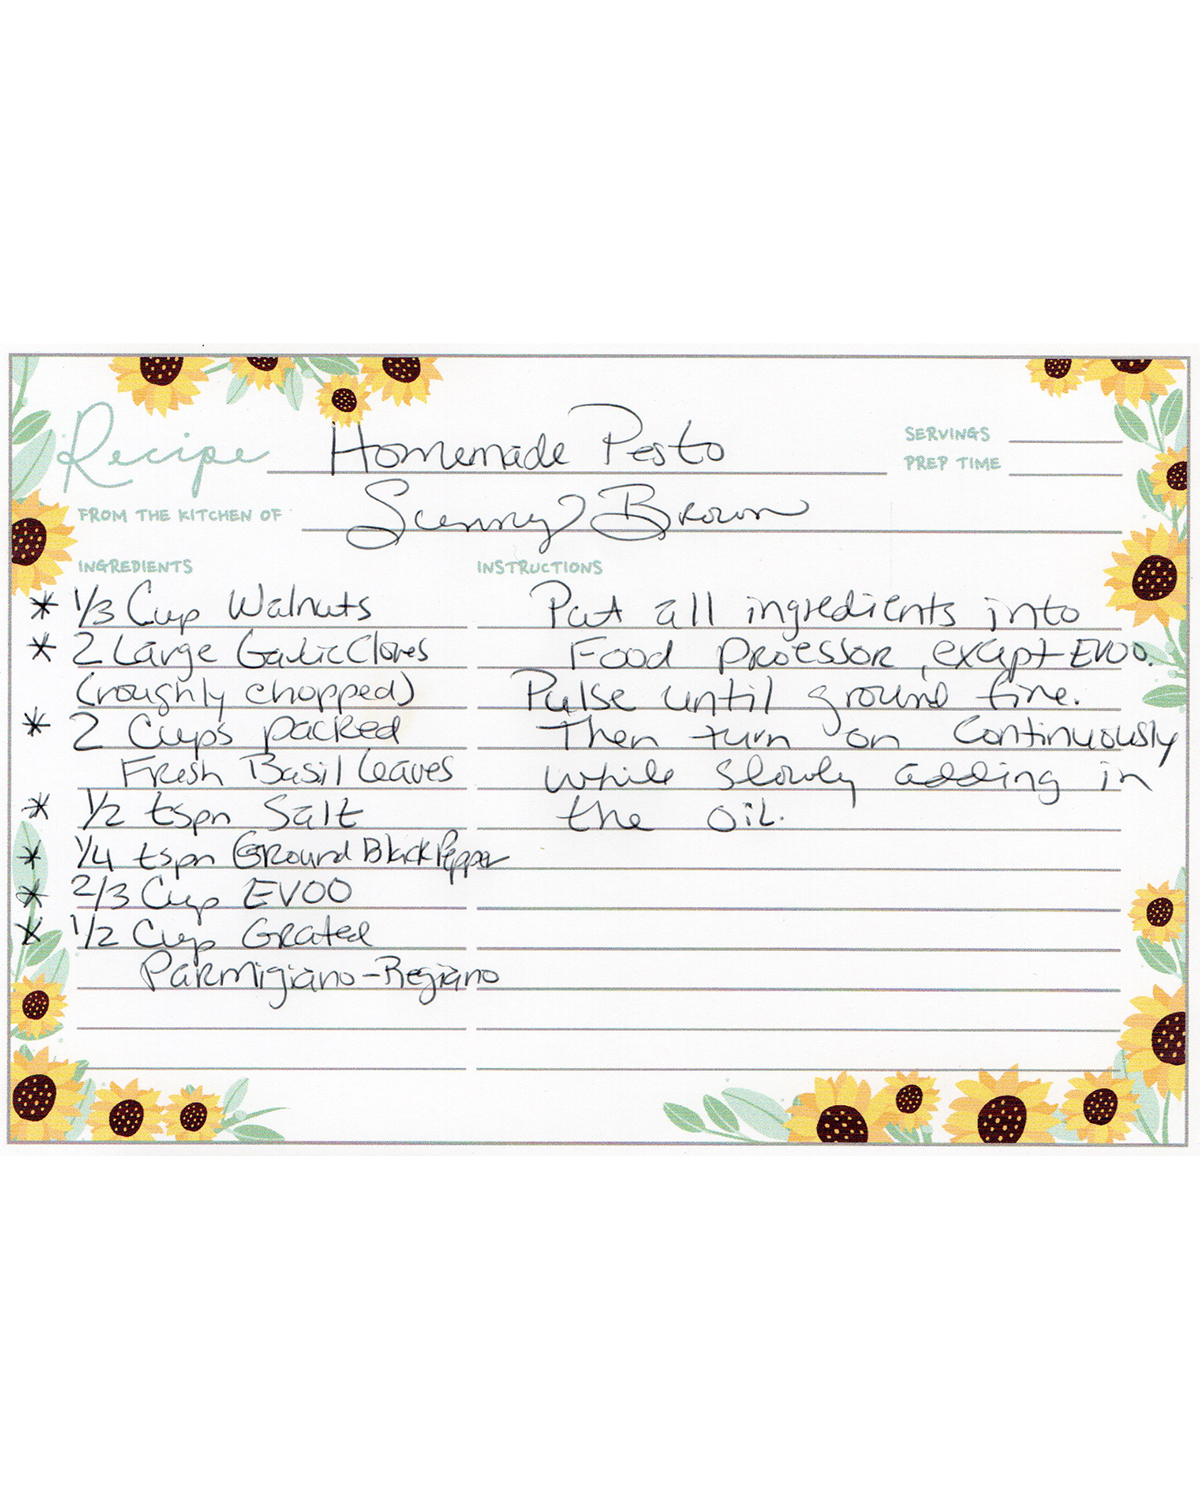 Recipe Homemade Pesto
SERVINGS
PREP TIME
FROM THE KITCHEN OF Sunny Brown
INGREDIENTS
* 1/3 Cup Walnuts
* 2 Large Garlic Cloves
(roughly chopped)
* 2 Cups packed
Fresh Basil leaves
* 1/2 tspn Salt
* 1/4 tspn Ground Black Pepper
* 2/3 Cup EVOO
* 1/2 Cup Grated
Parmigiano-Regiano
INSTRUCTIONS
Put all ingredients into
Food Proessor, except EVOO.
Pulse until ground fine.
Then turn on Continuously
while slowly adding in
the oil.